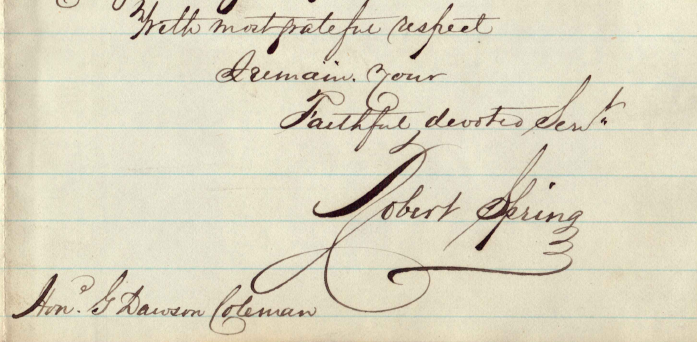 With most grateful respect
I remain. Your
Faithful devoted Servt.
Robert Spring
Hon.e G Dawson Coleman